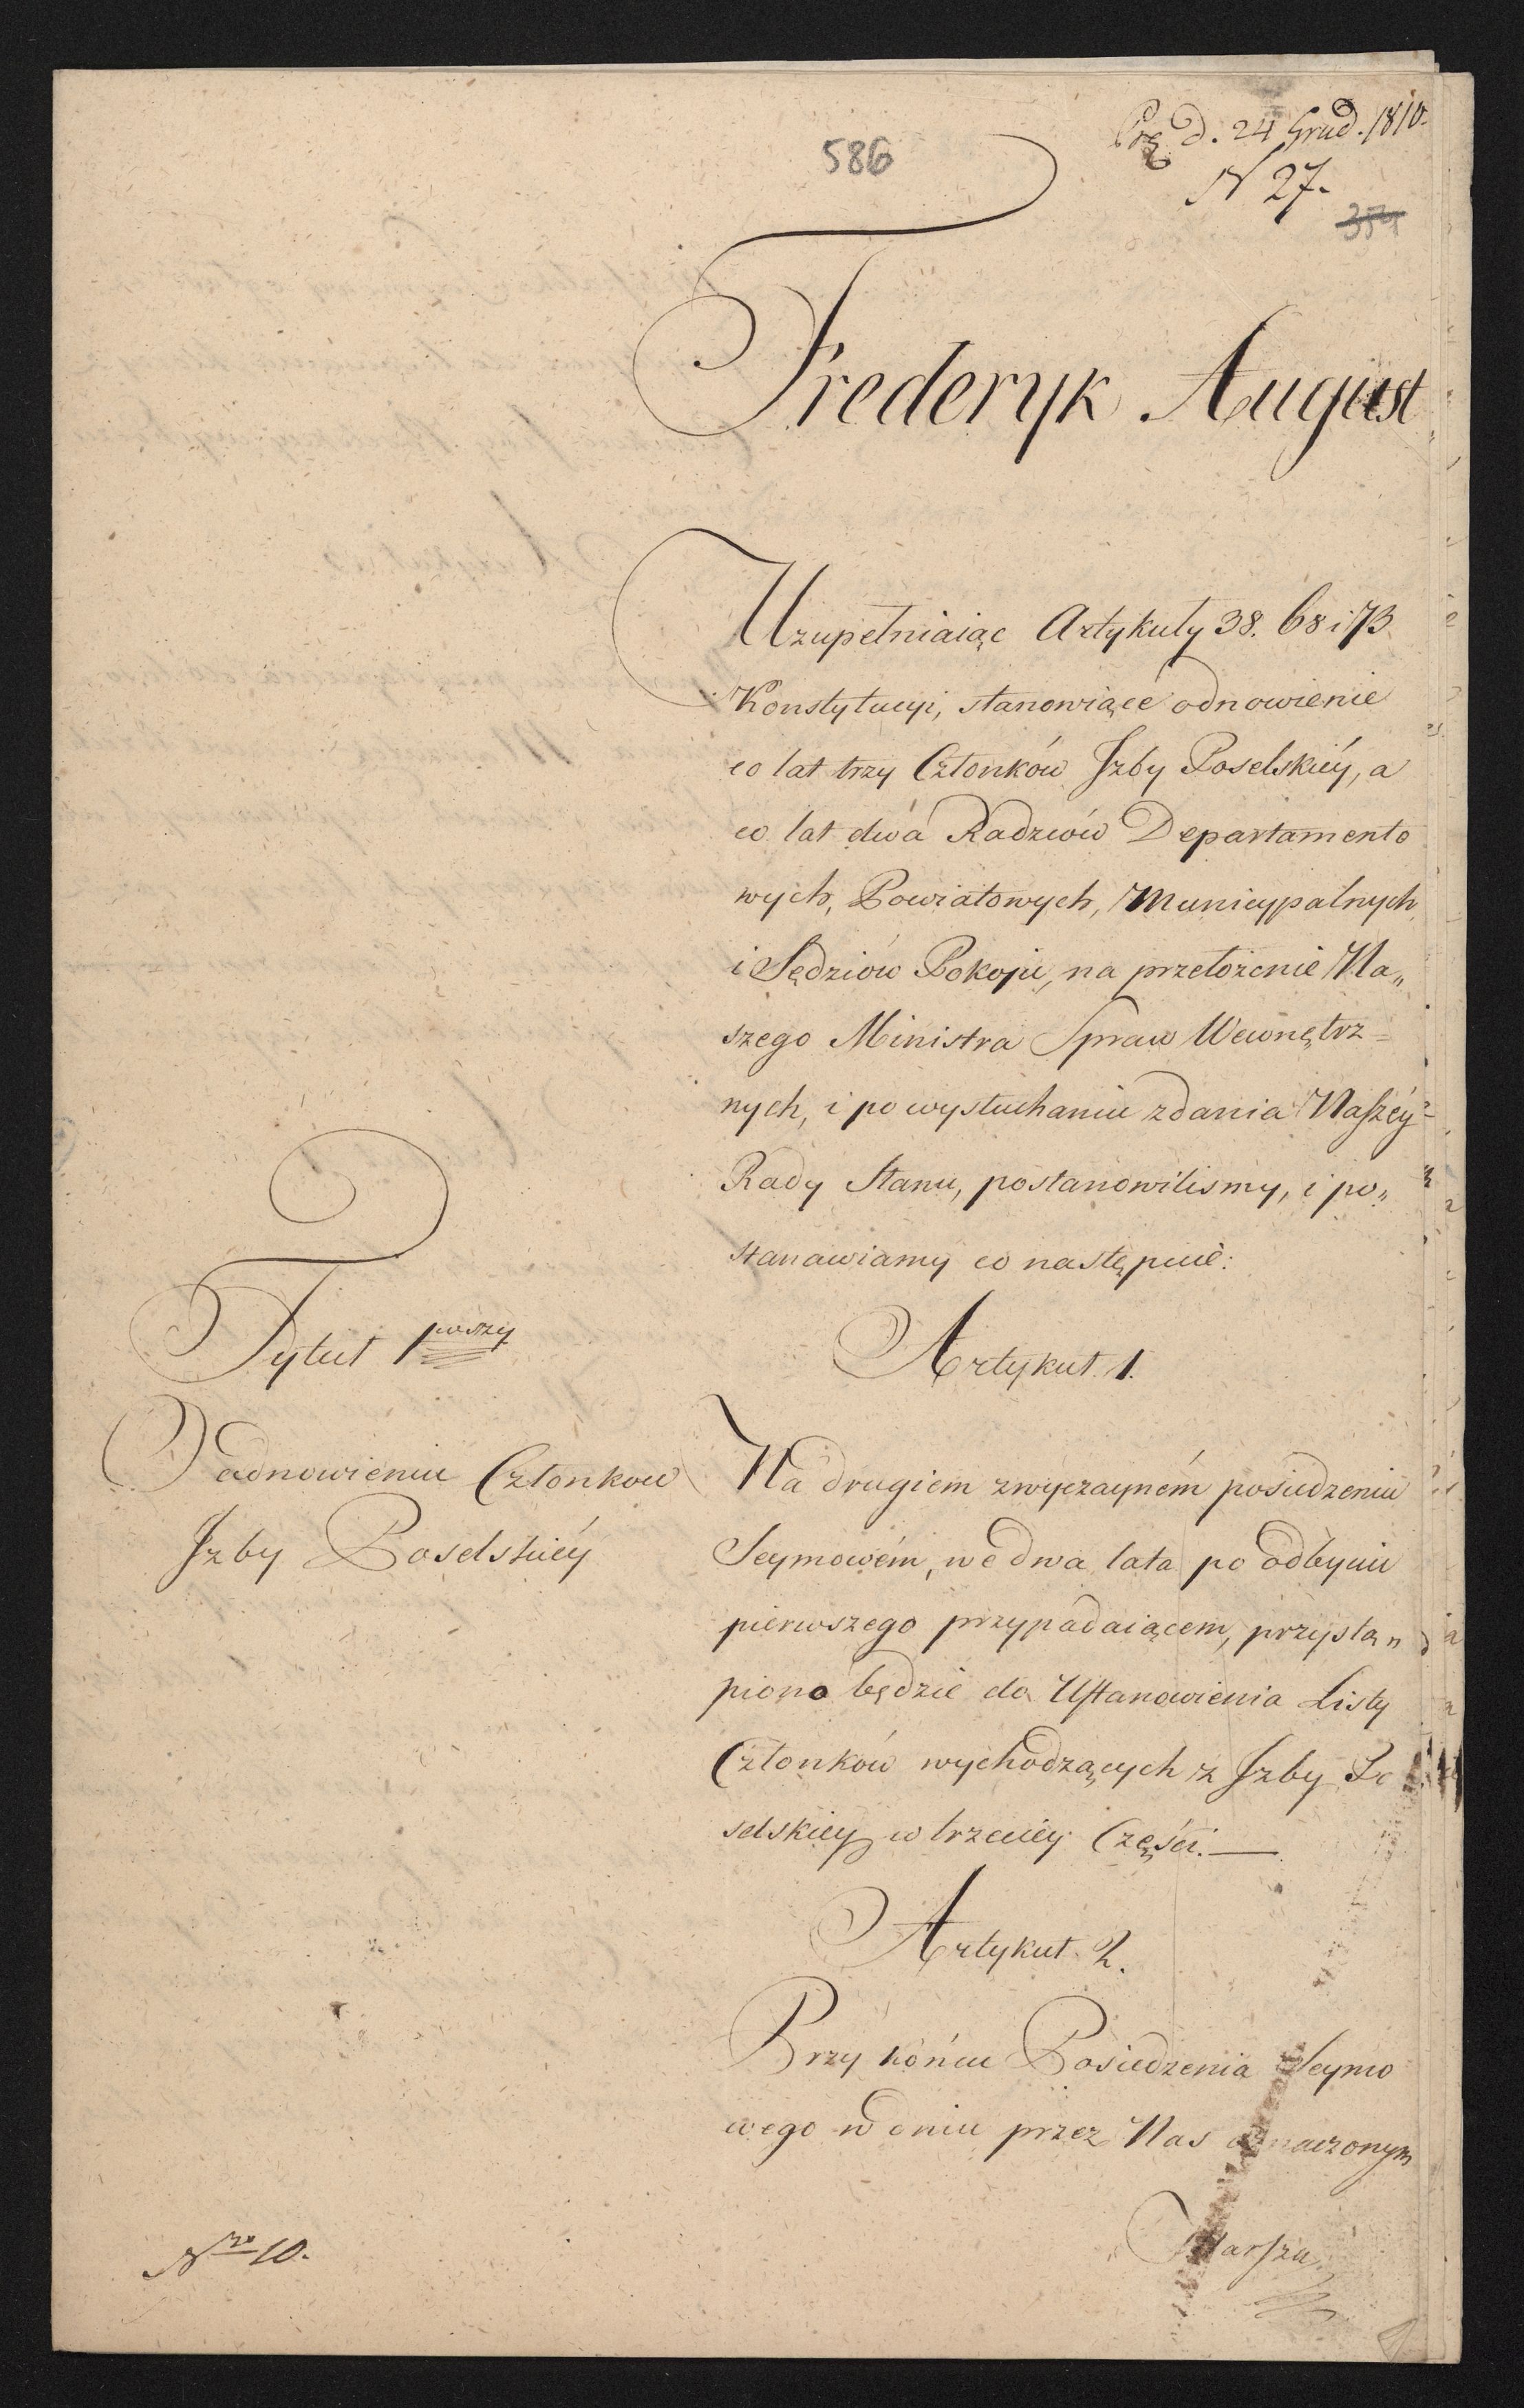 586
d. 24 Grud. 1810.
N 27.
354
Frederyk August
Uzupełniaiąc Artykuły 38. 68 i 73
Konstytucyi, stanowiące odnowienie
co lat trzy Członków Jzby Poselskiéy, a
co lat dwa Radzców Departamento
wych, Powiatowych, Municypalnych,
i Sędziów Pokoju, na przełożenie Na„
szego Ministra Spraw Wewnętrz=
nych, i po wysłuchaniu zdania Naszéy
Rady Stanu, postanowilismy, i po„
stanawiamy co następuie:
Tytuł 1wszy
Artykuł 1.
O odnowieniu Członkow
Jzby Poselskiéy
Na drugiem zwyczayném posiedzeniu
Seymowém, we dwa lata po odbyciu
pierwszego przypadaiącem, przystą„
piono będzie do Ustanowienia Listy
Członków wychodzących z Jzby Po
selskiey w trzeciey Części.—
Artykuł 2.
Przy końcu Posiedzenia Seymo
wego w dniu przez Nas oznaczonym
Marsza
Nro 10.